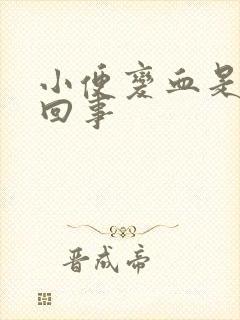 小便变血是
回事
晋成帝